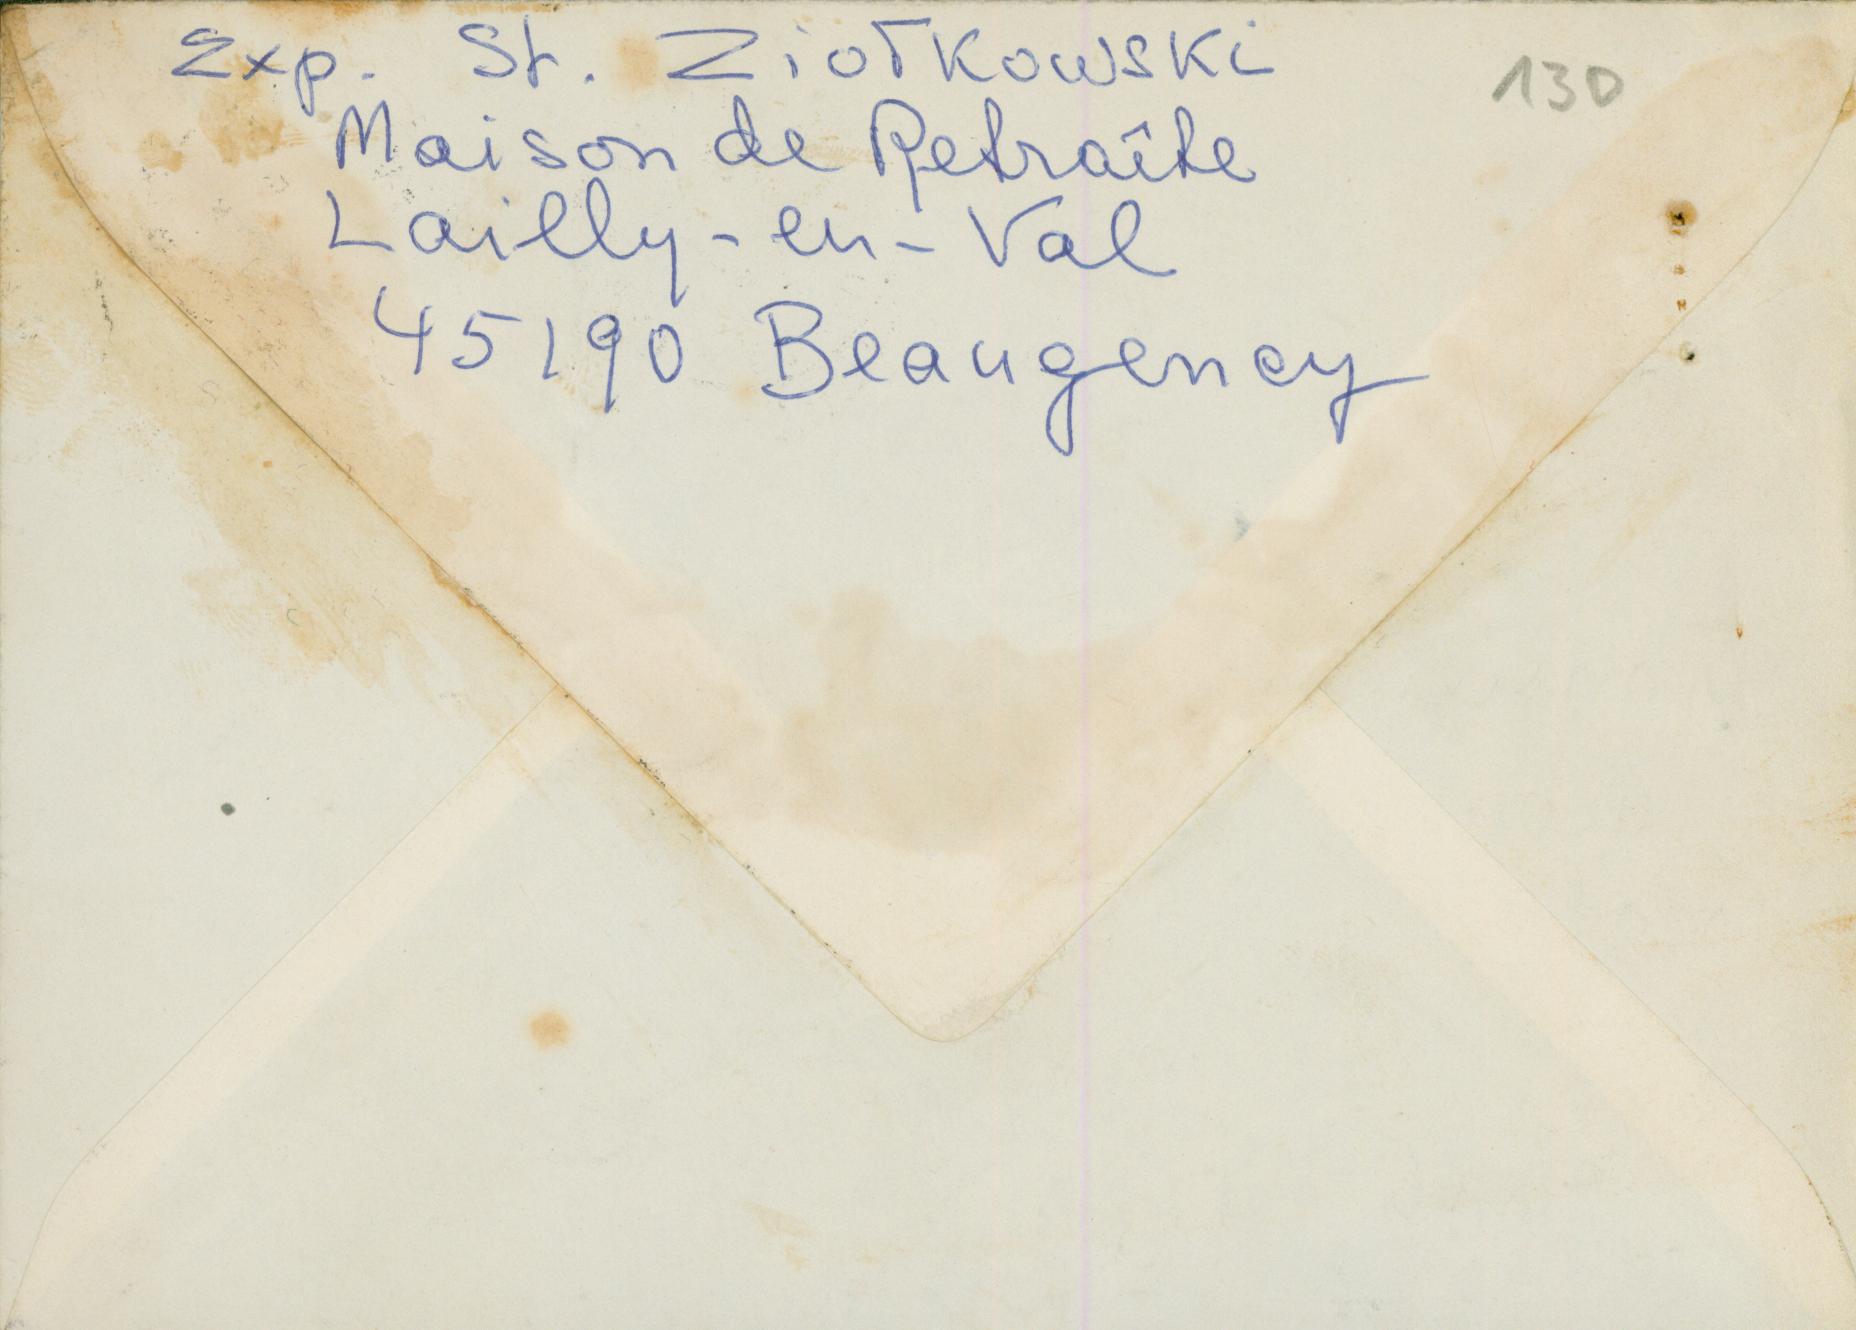 Exp. St. Ziołkowski
130
Maison de Retraîte
Lailly-en-Val
45190 Beaugency